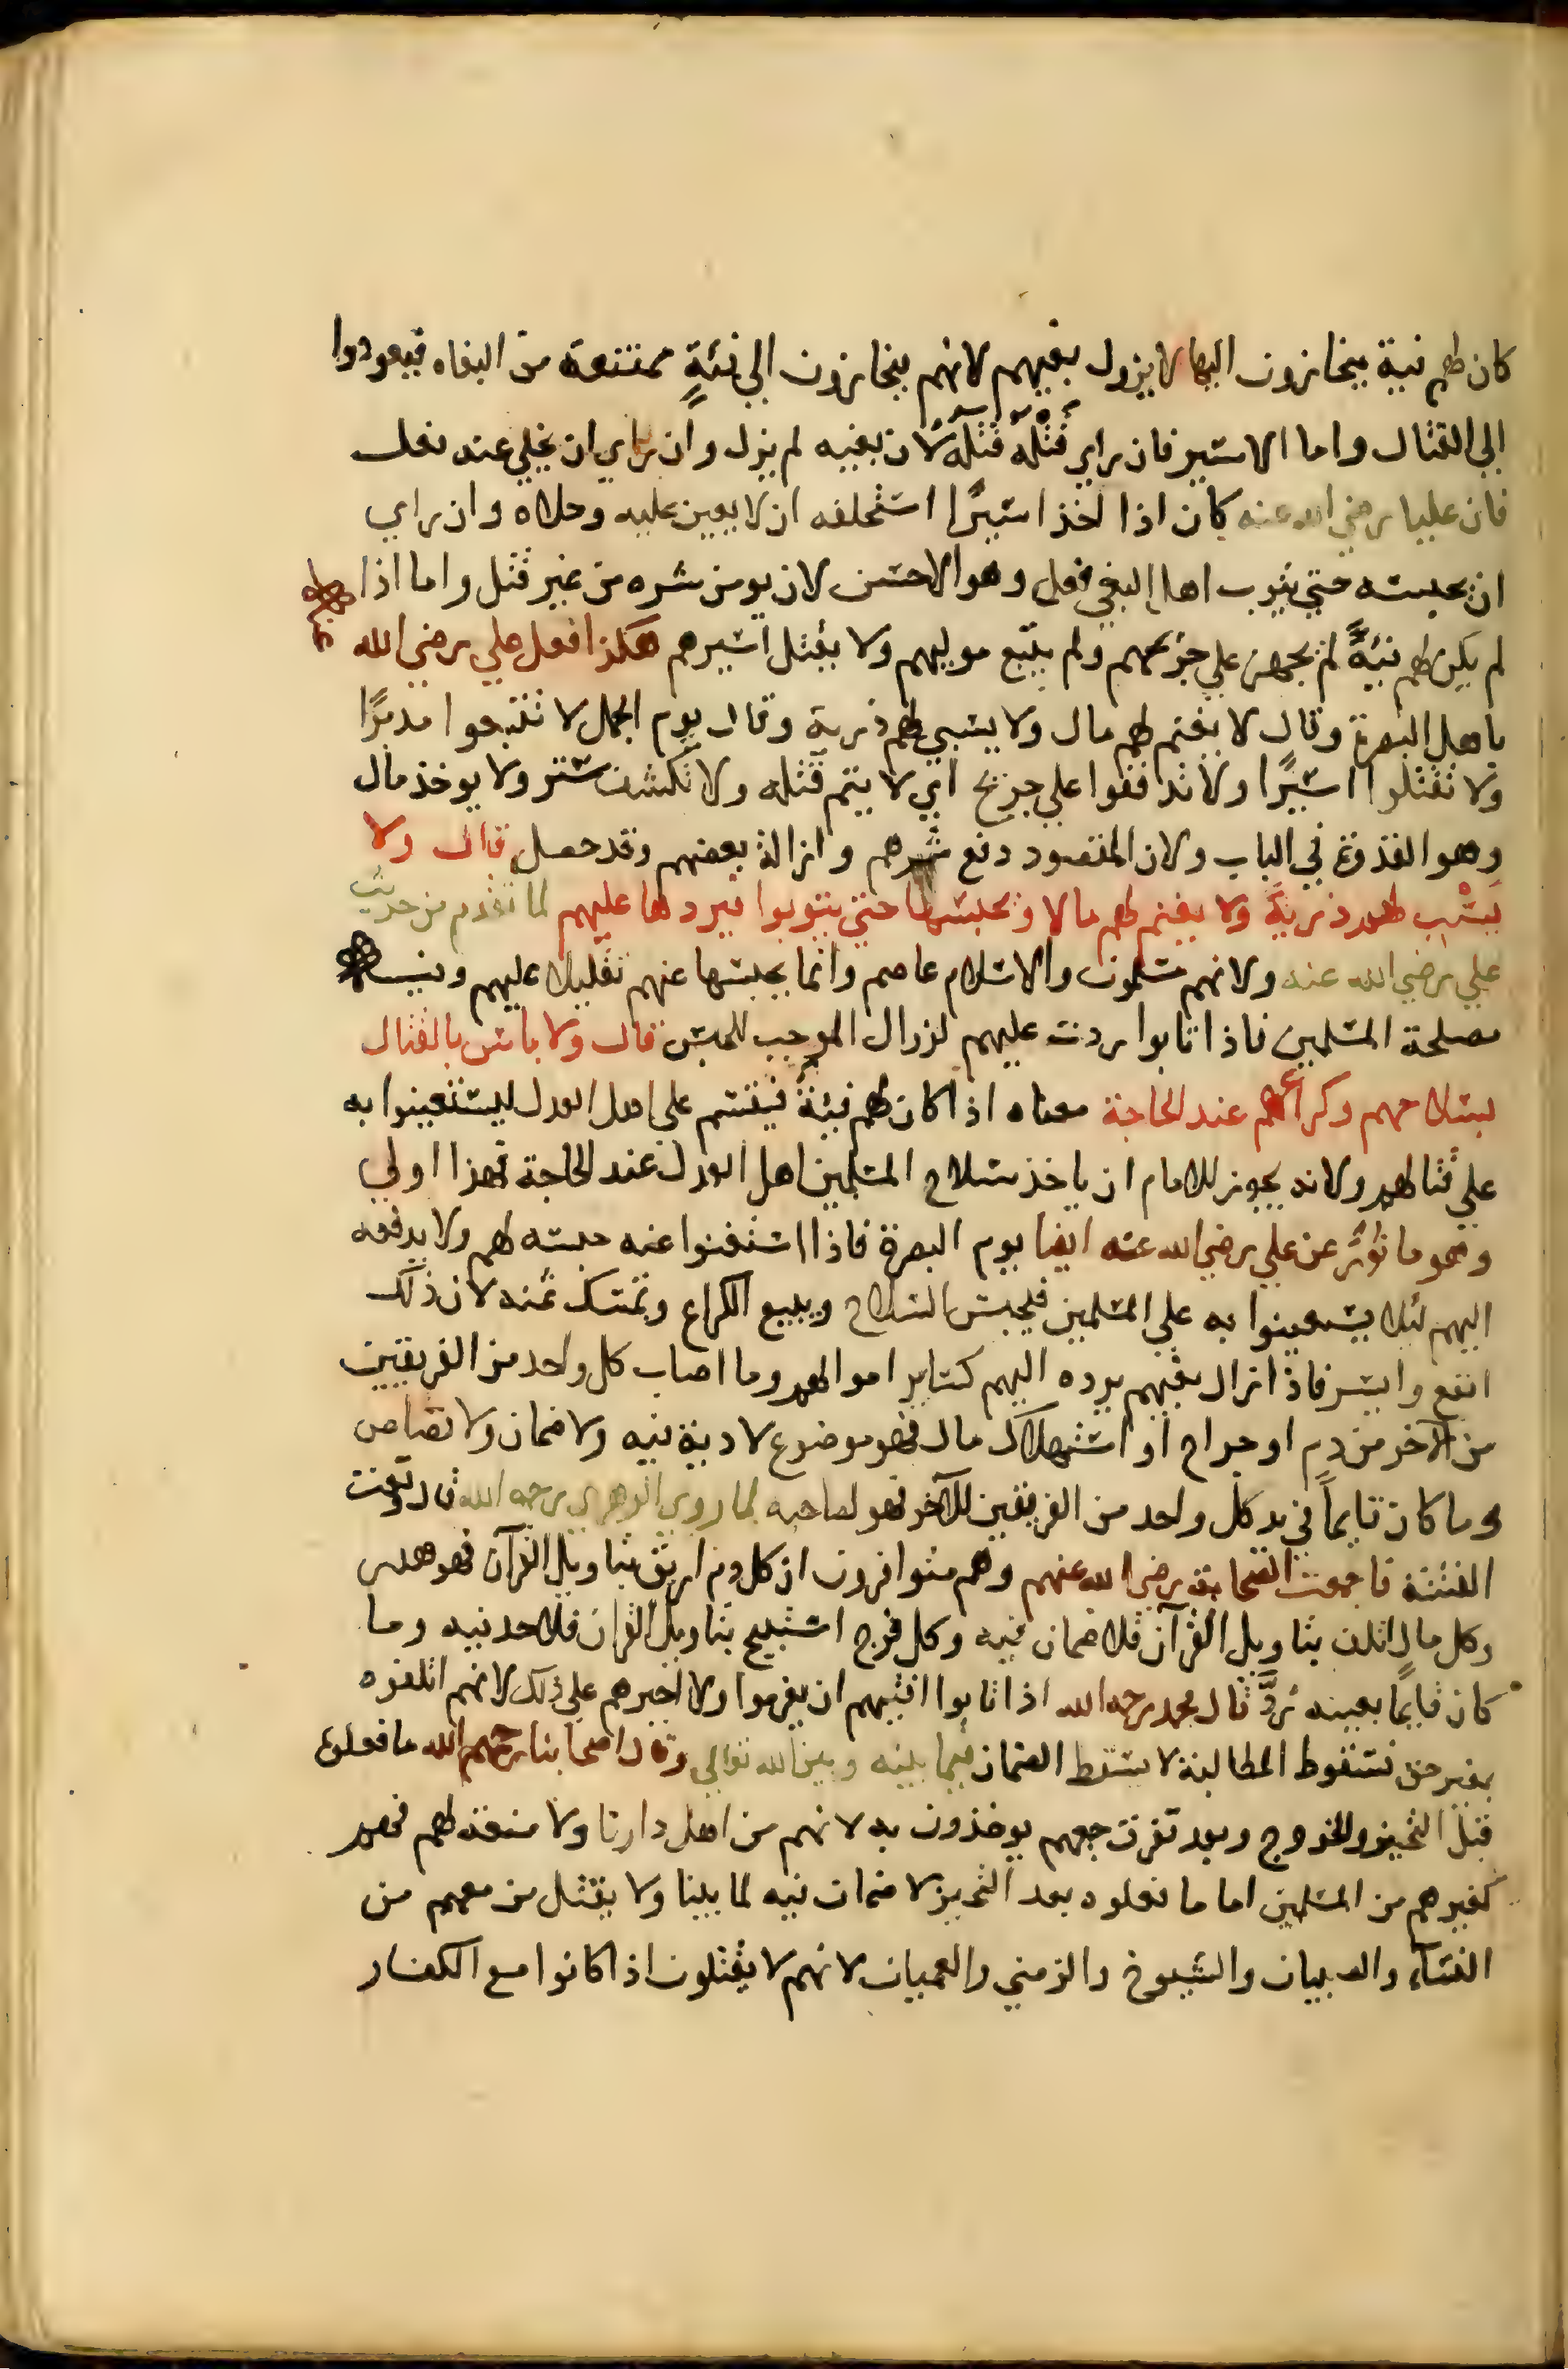 كان لهم فئة ينحازون اليها لا يزول بغيهم لانهم ينحازون الي فئةٍ ممتنعة من البغاه فيعودوا
الي القتال واما الاسير فان راي قَتْلَهُ قتله لان بغيه لم يزل وان راي ان يخلي عنه فعل
فان عليا رضي الله عنه كان اذا اخذ اسيرًا استحلفه ان لا يعين عليه وخلاه وان راي
ان يحبسه حتي يتوب اهل البغي فعل وهو الاحسن لان يومن شره من غير قتل واما اذا
لم يكن لهم فئةٌ لم يجهز علي جريحهم ولم يتبع موليهم ولا يقتل اسيرهم هكذا فعل علي رضي الله
باهل البصرة وقال لا يغنم لهم مال ولا يسبي لهم ذرية وقال يوم الجمل لا تتبعوا مدبرًا
ولا تقتلوا اسيرًا ولا تدففوا علي جريح اي لا يتم قتله ولا تكشف ستر ولا يوخذ مال
وهو القدوة في الباب ولان المقصود دفع شرهم وازالة بغيهم وقد حصل قال ولا
يَسْبِ لهم ذريةً ولا يغنم لهم مالا ويحبسها حتي يتوبوا فيردها عليهم لما تقدم من حديث
علي رضي الله عنه ولانهم مسلمون والاسلام عاصم وانما يحبسها عنهم تقليلا عليهم وفيه
مصلحة المسلمين فاذا تابوا ردت عليهم لزوال الموجب للحبس قال ولا باس بالقتال
بسلاحهم وكراعهم عند الحاجة معناه اذا كان لهم فئة فيقسم علي اهل العدل ليستعينوا به
علي قتالهم ولانه يجوز للامام ان ياخذ سلاح المسلمين اهل العدل عند الحاجة فهذا اولي
وهو ماثور عن علي رضي الله عنه ايضا يوم البصرة فاذا استغنوا عنه حبسه لهم ولا يدفعه
اليهم لئلا يستعينوا به علي المسلمين فيحبس السلاح ويبيع الكراع ويمسك ثمنه لان ذلك
انفع وايسر فاذا زال بغيهم يرده اليهم كساير اموالهم وما اصاب كل واحد من الفريقين
من الآخر من دم او جراح او استهلاك مال فهو موضوع لا دية فيه ولا ضمان ولا قصاص
وما كان قايماً في يد كل واحد من الفريقين للآخر فهو لصاحبه لما روي الزهري رحمه الله قال وقعت
الفتنة فاجمعت الصحابة رضي الله عنهم وهم متوافرون ان كل دم اريق بتاويل القرآن فهو هدر
وكل مال اتلف بتاويل القرآن فلا ضمان فيه وكل فرج استبيح بتاويل القران فلا حد فيه وما
كان قايمًا بعينه رُدَّ قال محمد رحمه الله اذا تابوا افتيهم ان يغرموا ولا اجبرهم علي ذلك لانهم اتلفوه
بغير حق فسقوط المطالبة لا يسقط الضمان فيما بينه وبين الله تعالي وقال اصحابنا رحمهم الله ما فعلوه
قبل التحيز والخروج وبعد تفرق جمعهم يوخذون به لانهم من اهل دارنا ولا منعة لهم فهم
كغيرهم من المسلمين اما ما فعلوه بعد التحيز لا ضمان فيه لما بينا ولا يقتل من معهم من
النساء والصبيان والشيوخ والزمني والعميان لانهم لا يقتلون اذا كانوا مع الكفار